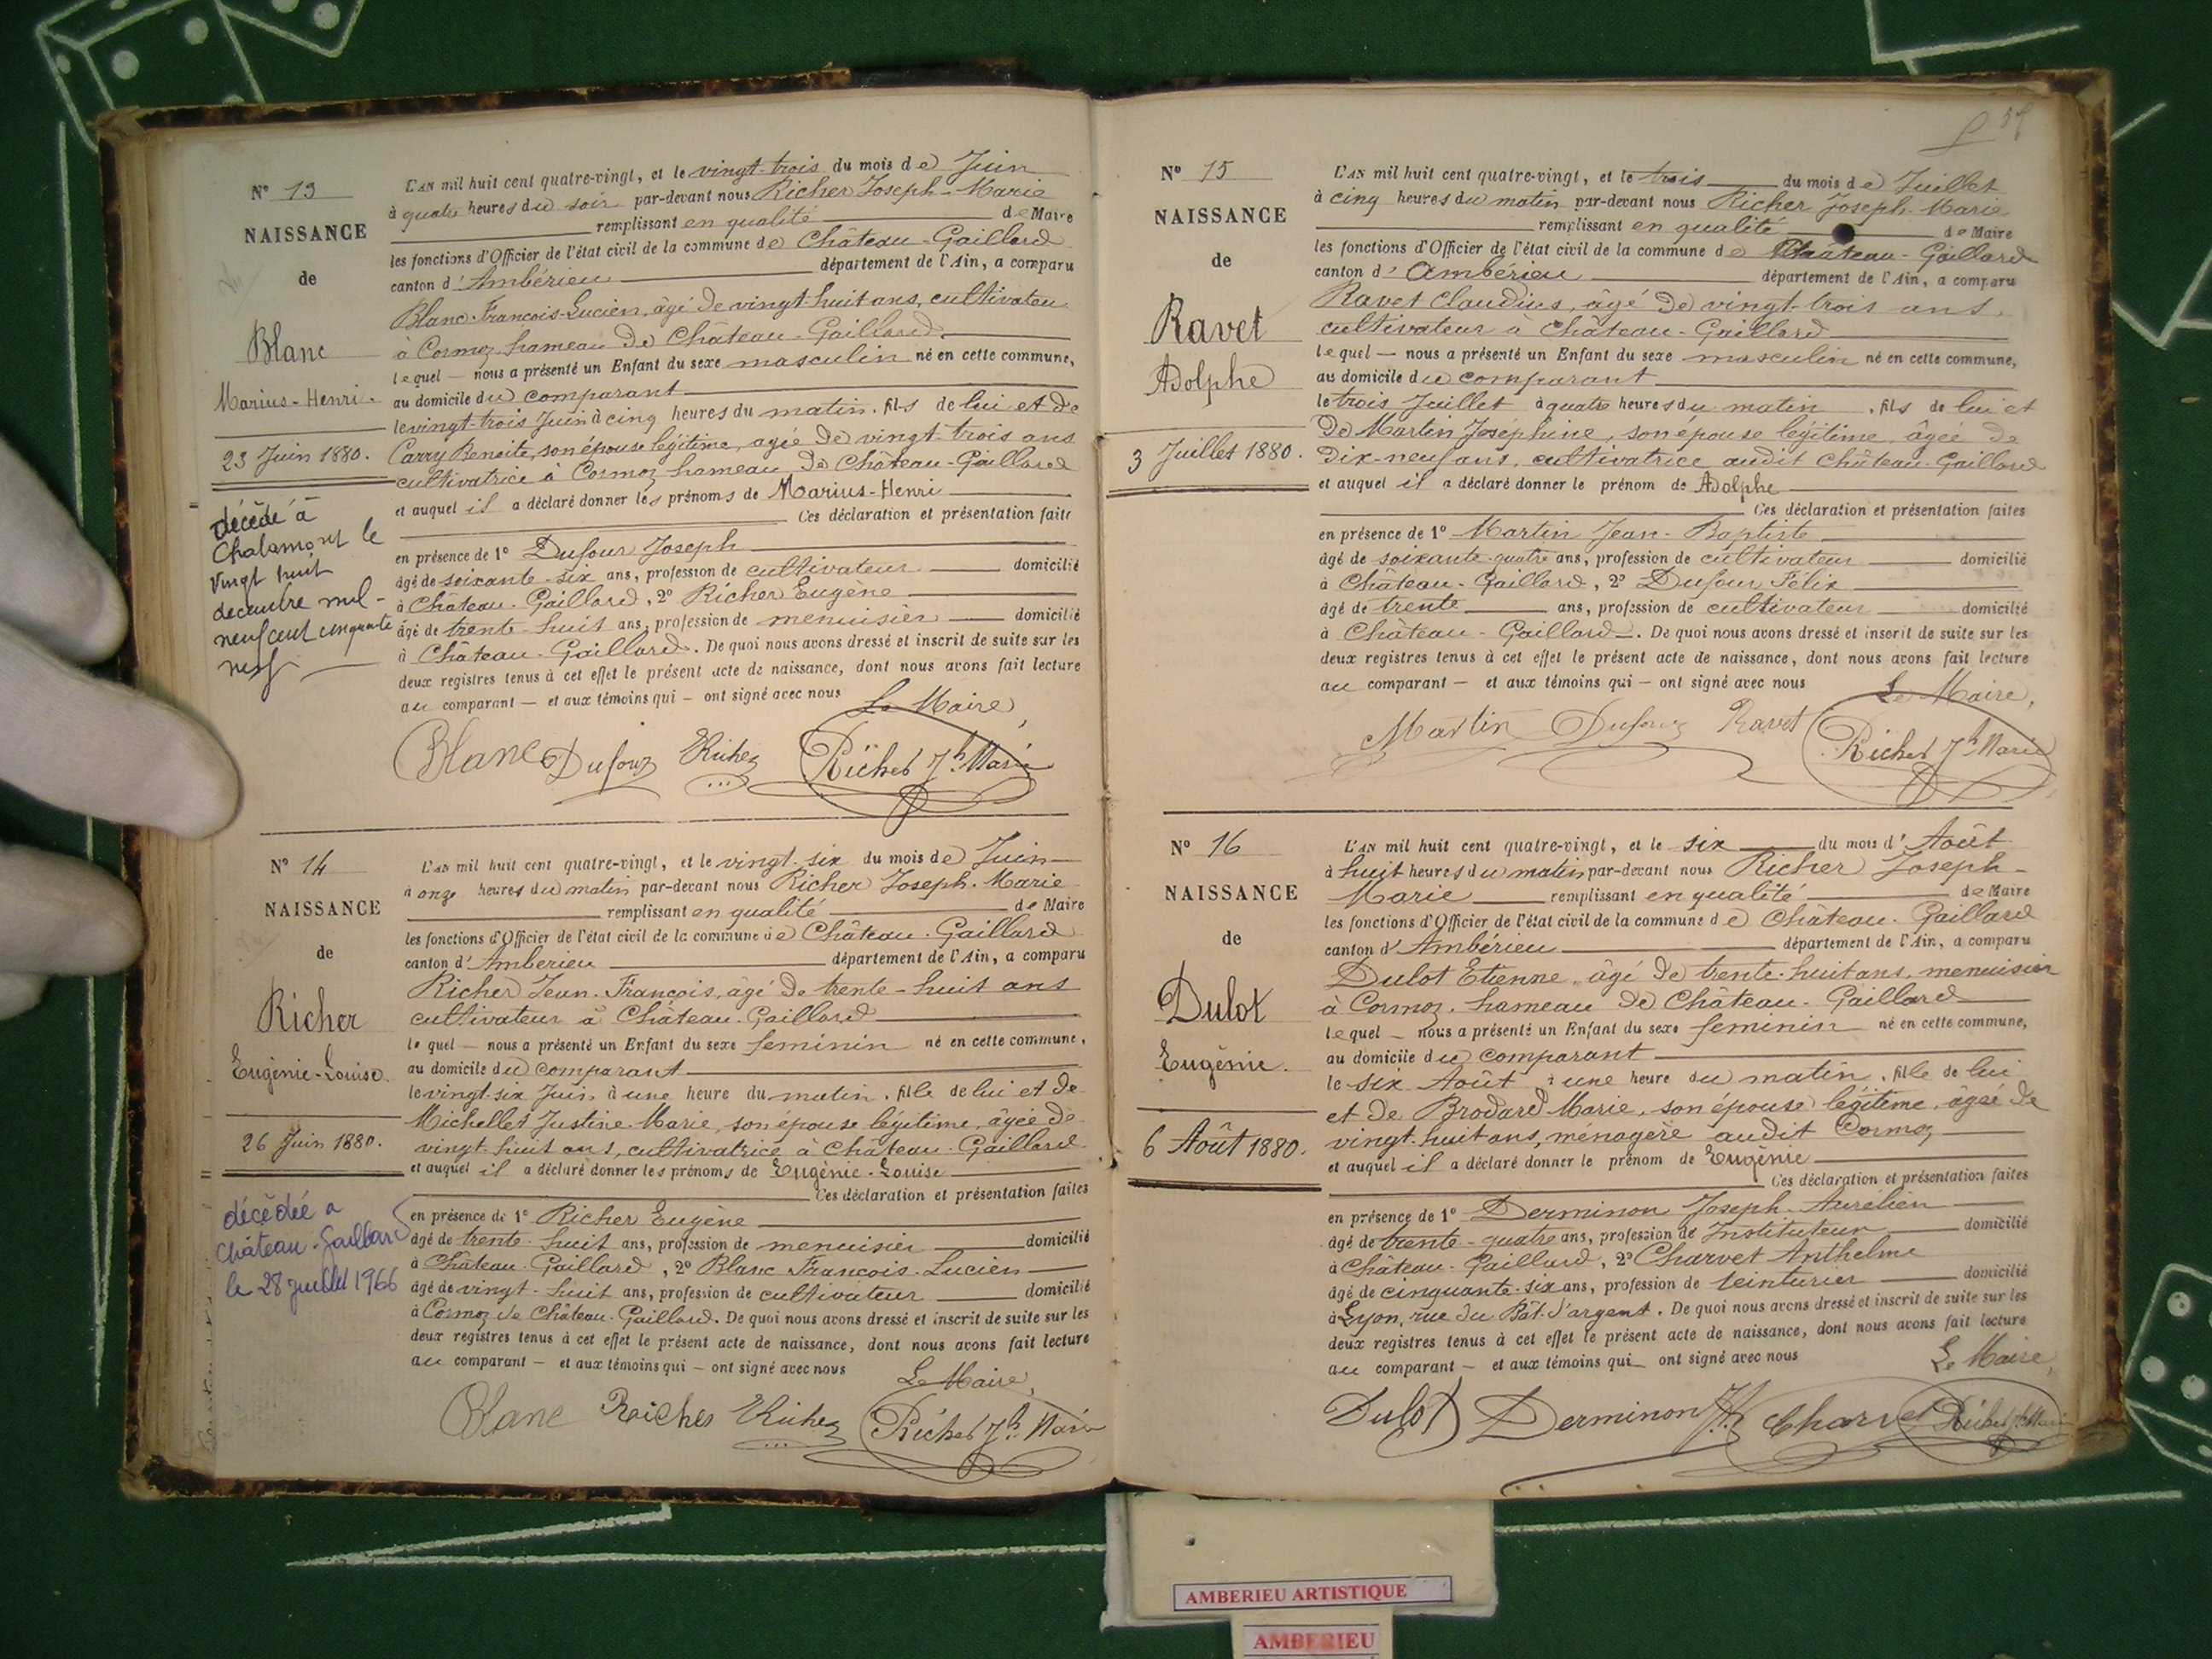 Nº 13
NAISSANCE
de
Blanc
Marius-Henri.
23 Juin 1880.
décédé à
Chalamont le
vingt huit
décembre mil-
neuf cent cinquante
neuf
L'AN mil huit cent quatre-vingt, et le vingt-trois du mois de Juin
à quatre heures du soir par-devant nous Richer Joseph-Marie
remplissant en qualité de Maire
les fonctions d'Officier de l'état civil de la commune de Château-Gaillard
canton d'Ambérieu département de l'Ain, a comparu
Blanc-François-Lucien, âgé de vingt-huit ans, cultivateur
à Cormoz hameau de Château-Gaillard.
lequel — nous a présenté un Enfant du sexe masculin né en cette commune,
au domicile du comparant
le vingt-trois Juin à cinq heures du matin. fils de lui et de
Carry Benoite, son épouse légitime, agée de vingt-trois ans
cultivatrice à Cormoz hameau de Château-Gaillard
et auquel il a déclaré donner les prénoms de Marius-Henri
Ces déclaration et présentation faite
en présence de 1º Dufour Joseph
âgé de soixante-six ans, profession de cultivateur domicilié
à Château-Gaillard, 2º Richer Eugène
âgé de trente-huit ans, profession de menuisier domicilié
à Château-Gaillard. De quoi nous avons dressé et inscrit de suite sur les
deux registres tenus à cet effet le présent acte de naissance, dont nous avons fait lecture
au comparant — et aux témoins qui — ont signé avec nous
Le Maire,
Blanc Dufour Richer Richer Jh Marie
Nº 14
NAISSANCE
de
Richer
Eugénie-Louise.
26 Juin 1880.
décédée à
Château-Gaillard
le 28 juillet 1966
L'AN mil huit cent quatre-vingt, et le vingt-six du mois de Juin
à onze heures du matin par-devant nous Richer Joseph-Marie
remplissant en qualité de Maire
les fonctions d'Officier de l'état civil de la commune de Château-Gaillard
canton d'Amberieu département de l'Ain, a comparu
Richer Jean-François, âgé de trente-huit ans
cultivateur à Château-Gaillard
lequel — nous a présenté un Enfant du sexe feminin né en cette commune,
au domicile du comparant
le vingt-six Juin à une heure du matin. fille de lui et de
Michellet Justine-Marie, son épouse légitime, âgée de
vingt-huit ans, cultivatrice à Château-Gaillard
et auquel il a déclaré donner les prénoms de Eugènie-Louise
Ces déclaration et présentation faites
en présence de 1º Richer Eugène
âgé de trente-huit ans, profession de menuisier domicilié
à Château-Gaillard, 2º Blanc François-Lucien
âgé de vingt-huit ans, profession de cultivateur domicilié
à Cormoz de Château-Gaillard. De quoi nous avons dressé et inscrit de suite sur les
deux registres tenus à cet effet le présent acte de naissance, dont nous avons fait lecture
au comparant — et aux témoins qui — ont signé avec nous
Le Maire,
Blanc Richer Richer Richer Jh Marie
Nº 15
NAISSANCE
de
Ravet
Adolphe
3 Juillet 1880.
L'AN mil huit cent quatre-vingt, et le trois du mois de Juillet
à cinq heures du matin par-devant nous Richer Joseph-Marie
remplissant en qualité de Maire
les fonctions d'Officier de l'état civil de la commune de Château-Gaillard
canton d'Ambérieu département de l'Ain, a comparu
Ravet Claudius, âgé de vingt-trois ans,
cultivateur à Château-Gaillard
lequel — nous a présenté un Enfant du sexe masculin né en cette commune,
au domicile du comparant
le trois Juillet à quatre heures du matin. fils de lui et
de Martin Joséphine, son épouse légitime, âgée de
dix-neuf ans, cultivatrice audit Château-Gaillard
et auquel il a déclaré donner le prénom de Adolphe
Ces déclaration et présentation faites
en présence de 1º Martin Jean-Baptiste
âgé de soixante-quatre ans, profession de cultivateur domicilié
à Château-Gaillard, 2º Dufour Félix
âgé de trente ans, profession de cultivateur domicilié
à Château-Gaillard. De quoi nous avons dressé et inscrit de suite sur les
deux registres tenus à cet effet le présent acte de naissance, dont nous avons fait lecture
au comparant — et aux témoins qui — ont signé avec nous
Le Maire,
Martin Dufour Ravet Richer Jh Marie
Nº 16
NAISSANCE
de
Dulot
Eugènie.
6 Août 1880.
L'AN mil huit cent quatre-vingt, et le six du mois d'Août
à huit heures du matin par-devant nous Richer Joseph-
Marie remplissant en qualité de Maire
les fonctions d'Officier de l'état civil de la commune de Château-Gaillard
canton d'Ambérieu département de l'Ain, a comparu
Dulot Etienne, âgé de trente-huit ans, menuisier
à Cormoz, hameau de Château-Gaillard
lequel — nous a présenté un Enfant du sexe feminin né en cette commune,
au domicile du comparant
le six Août à une heure du matin. fille de lui
et de Brodard Marie, son épouse légitime, âgée de
vingt-huit ans, ménagère audit Cormoz
et auquel il a déclaré donner le prénom de Eugènie
Ces déclaration et présentation faites
en présence de 1º Derminon Joseph-Aurélien
âgé de trente-quatre ans, profession de Instituteur domicilié
à Château-Gaillard, 2º Charvet Anthelme
âgé de cinquante-six ans, profession de teinturier domicilié
à Lyon, rue du Bât-d'argent. De quoi nous avons dressé et inscrit de suite sur les
deux registres tenus à cet effet le présent acte de naissance, dont nous avons fait lecture
au comparant — et aux témoins qui — ont signé avec nous
Le Maire,
Dulot Derminon Charvet Richer Jh Marie
AMBERIEU ARTISTIQUE
AMBERIEU